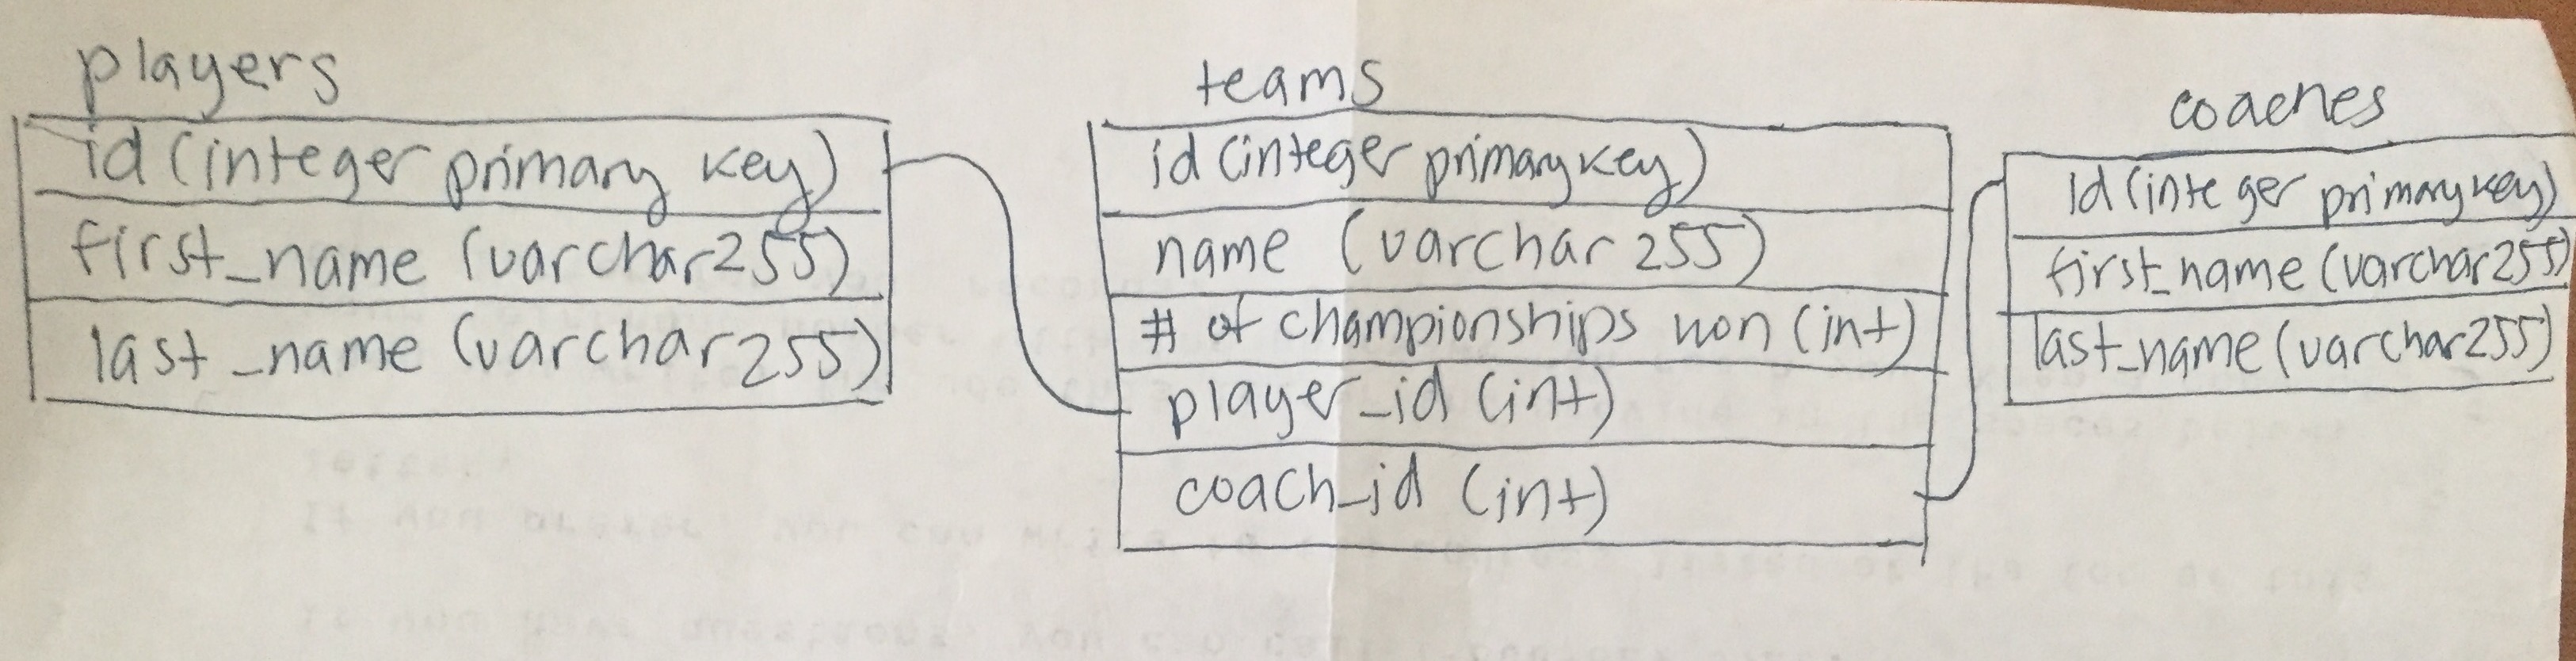 players
id (integer primary key)
first_name (varchar255)
last_name (varchar255)
teams
id (integer primary key)
name (varchar 255)
# of championships won (int)
player_id (int)
coach_id (int)
coaches
id (integer primary key)
first_name (varchar255)
last_name (varchar255)